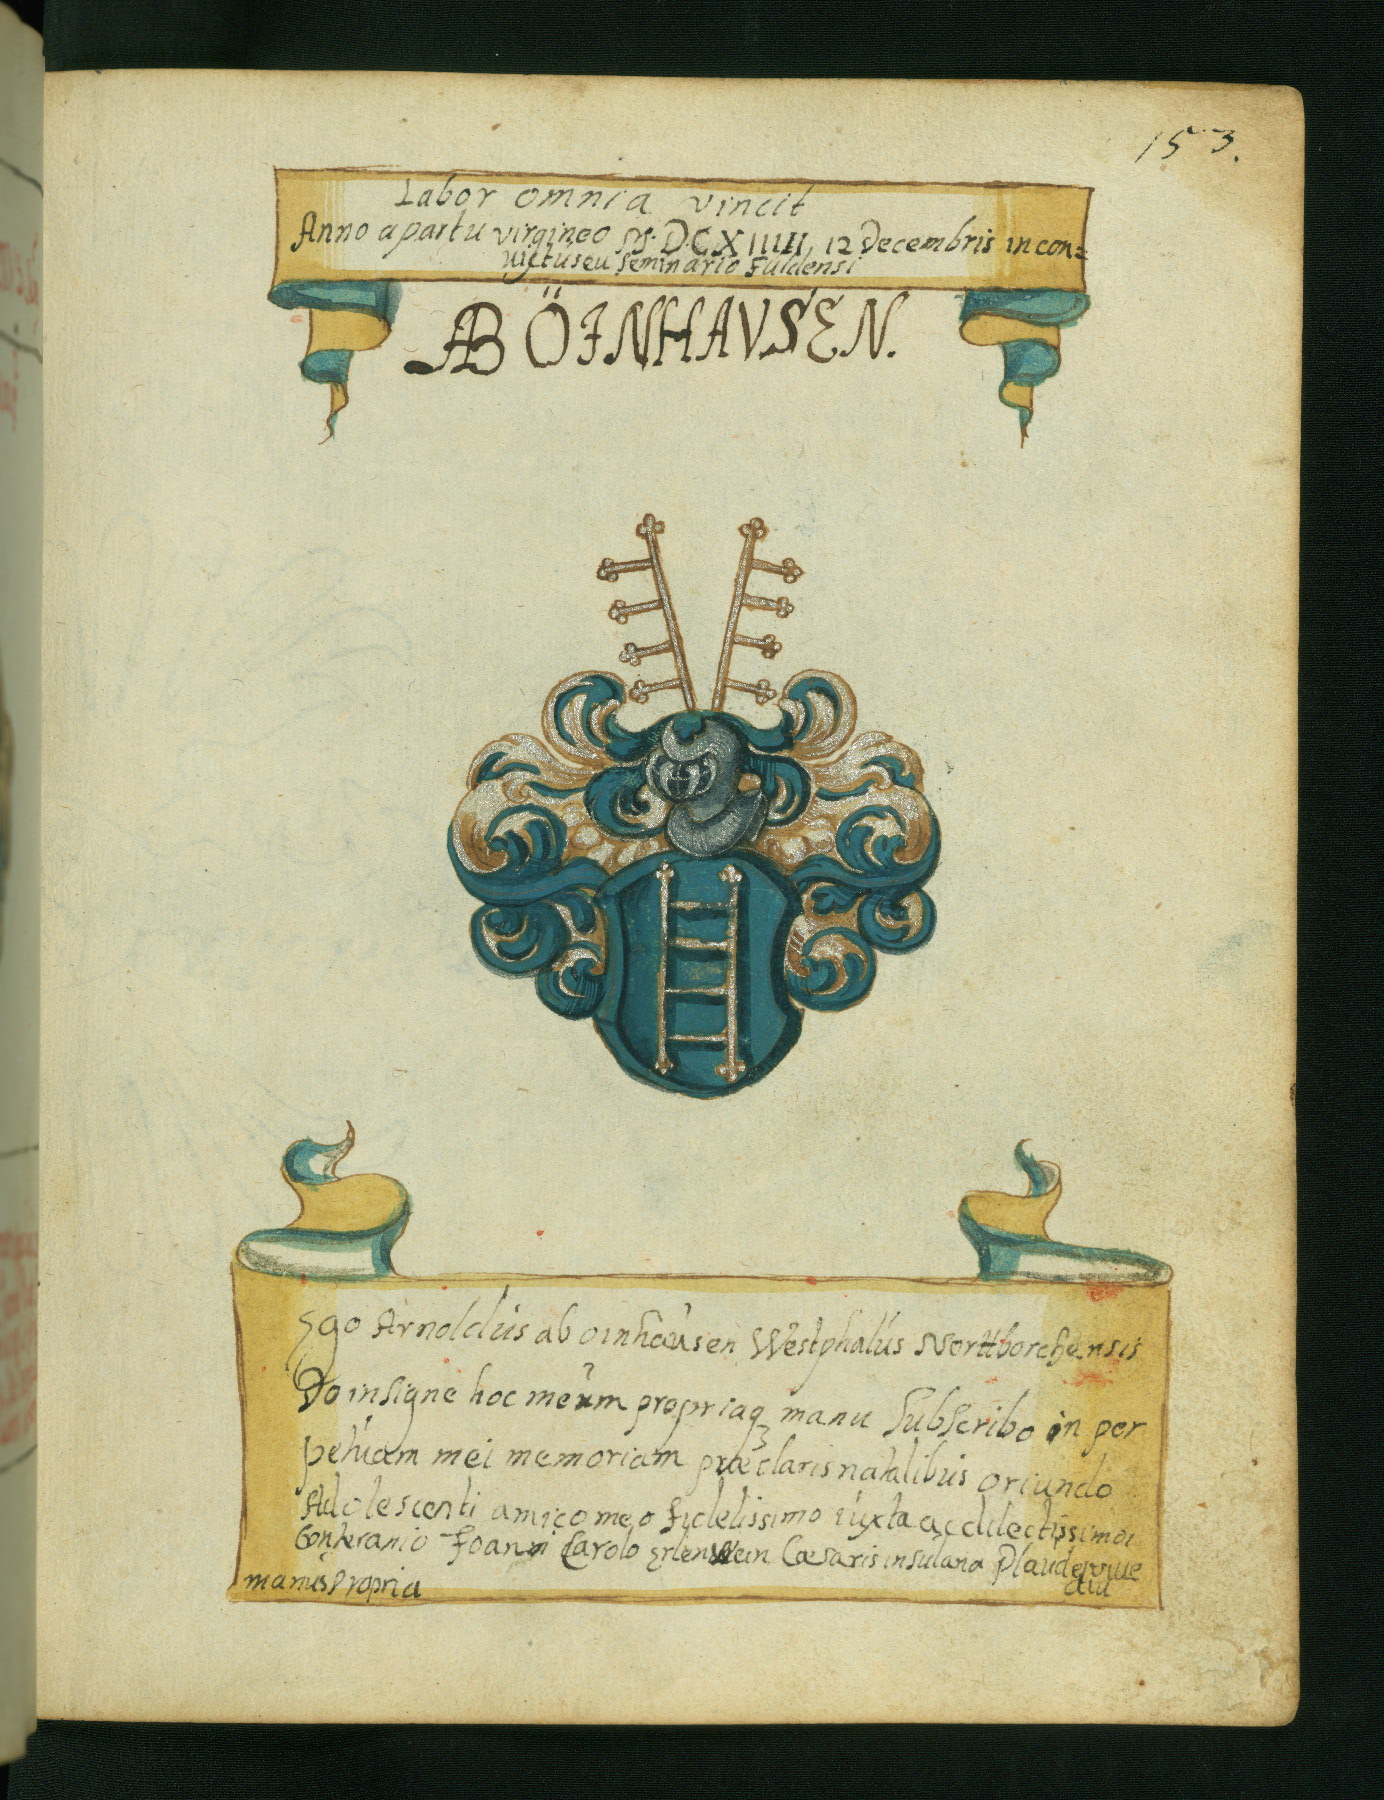 153.
Labor omnia vincit
Anno a partu virgineo M. DCXIIIII, 12 Decembris in con=
uictu seu seminario Fuldensi
AB ÖINHAVSEN.
Ego Arnoldus ab oinhausen Westphalus Nortborchensis
Do insigne hoc meum propriaq manu Subscribo in per
petuam mei memoriam præclaris natalibus oriundo
Adolescenti amico meo fidelissimo iuxta ac dilectissimo
Conteranio Joanni Carolo Erlenwein Cæsaris insulana
manus propria